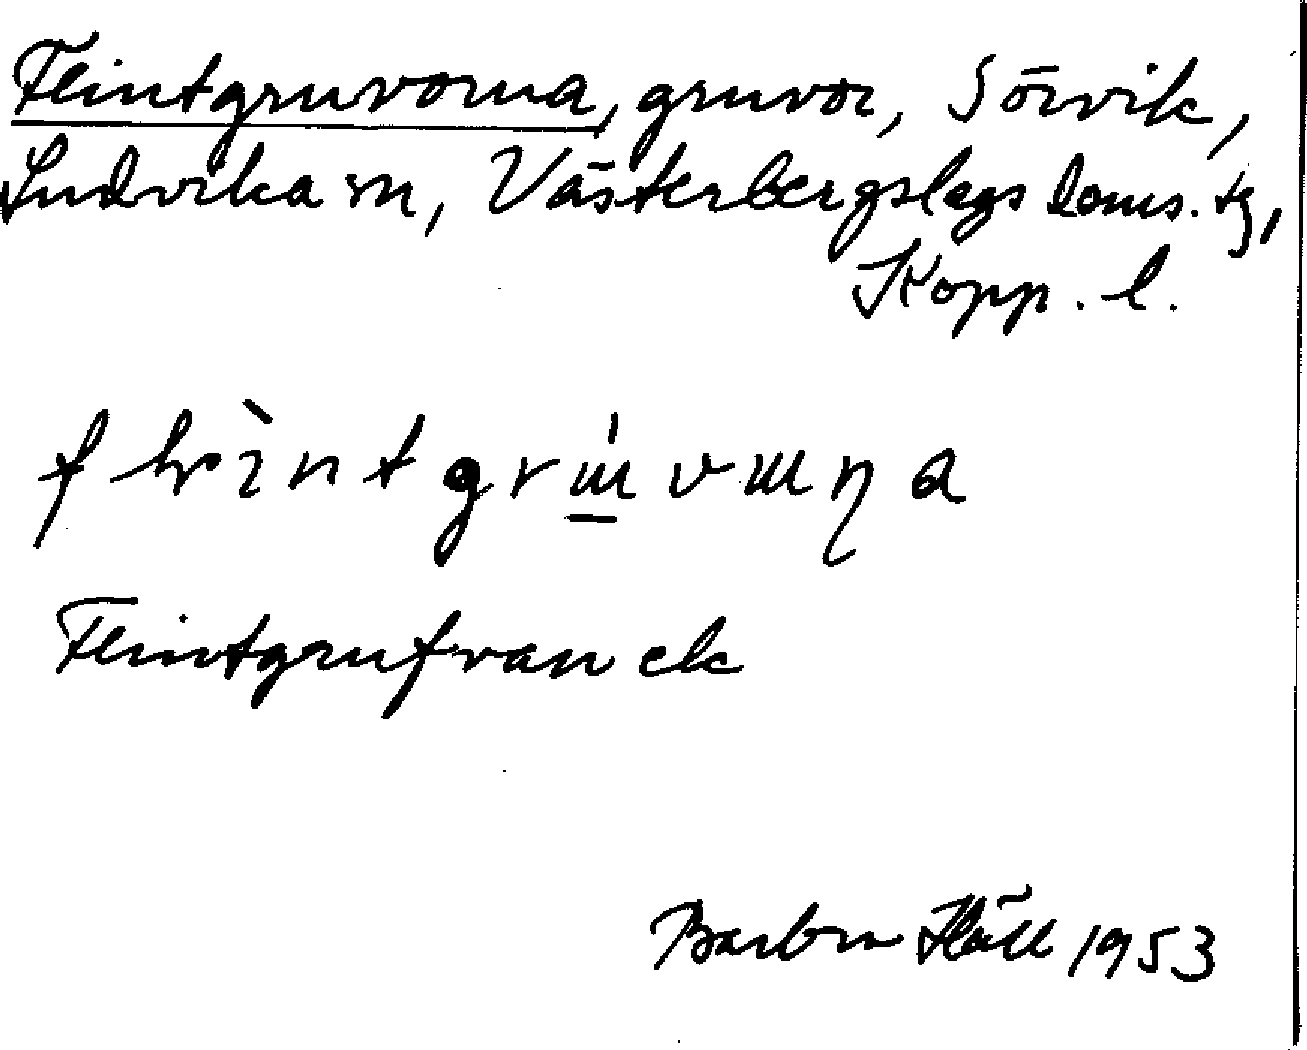 Flintgruvorna, gruvor, Sörvik,
Ludvika sn, Västerbergslags doms. tg,
Kopp. l.
Flintgrufvan ek
Barbro Häll 1953